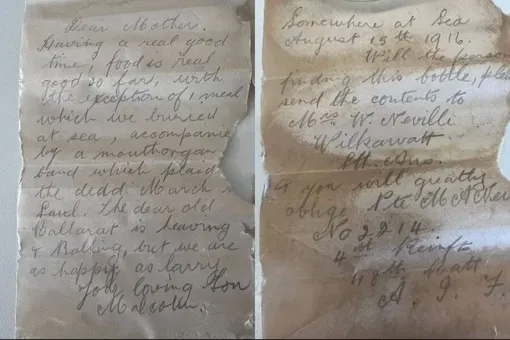 Dear Mother.
Having a real good
time, food is real
good so far, with
the exception of 1 meal
which we buried
at sea, accompanie
by a mouthorgan
band which plaid
the dedd March
Saul. The dear old
Ballarat is heaving
& Rolling, but we are
as happy as larry
Your loving Son
Malcolm.
Somewhere at Sea
August 15th 1916.
Will the person
finding this bottle,
send the contents to
Mrs W. Neville
Wilkawatt
Sth Aus.
& you will greatly
oblige Pte M A
No 2214.
4th Reinfts
48th Batt
A. I. F.